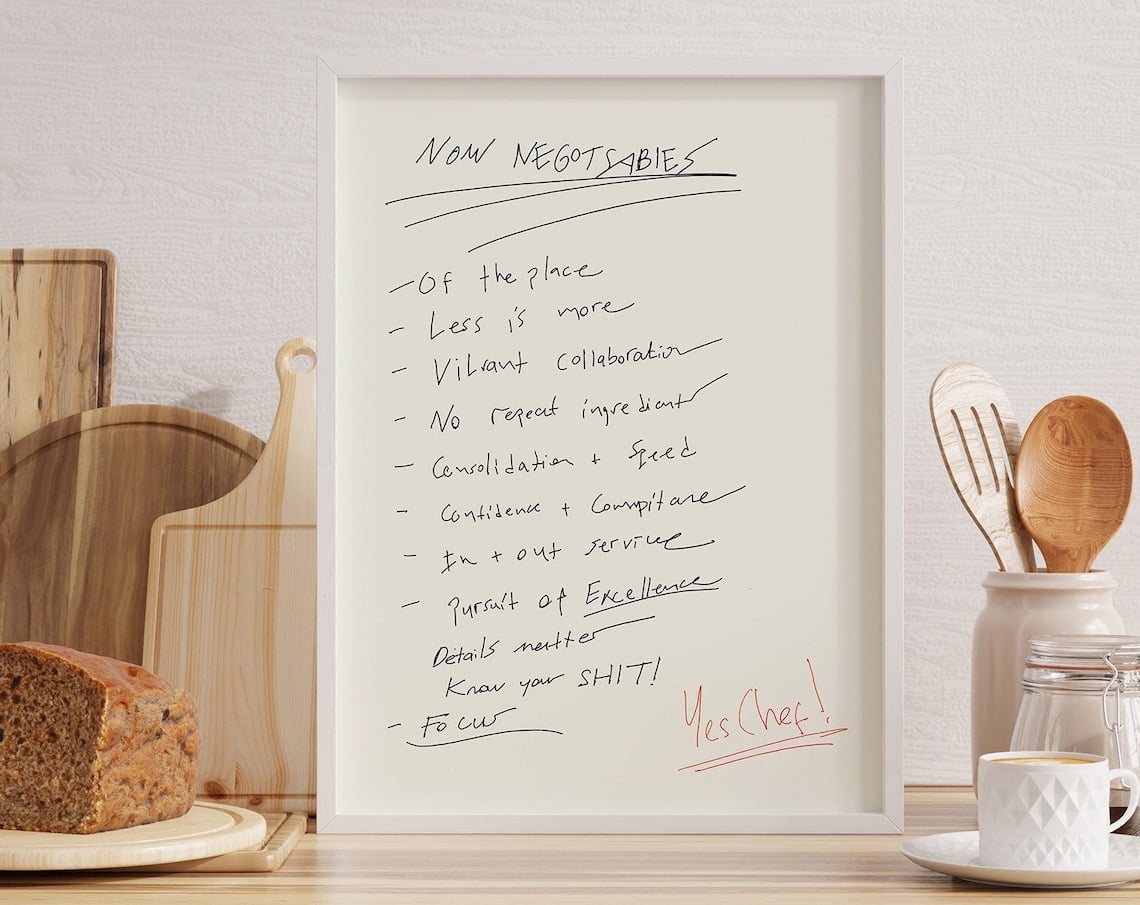 NON NEGOTIABLES
- Of the place
- Less is more
- Vibrant collaboration
- No repeat ingredients
- Consolidation + Speed
- Confidence +
- In + out service
- Pursuit of Excellence
Details matter
Know your SHIT!
- Focus
Yes Chef!